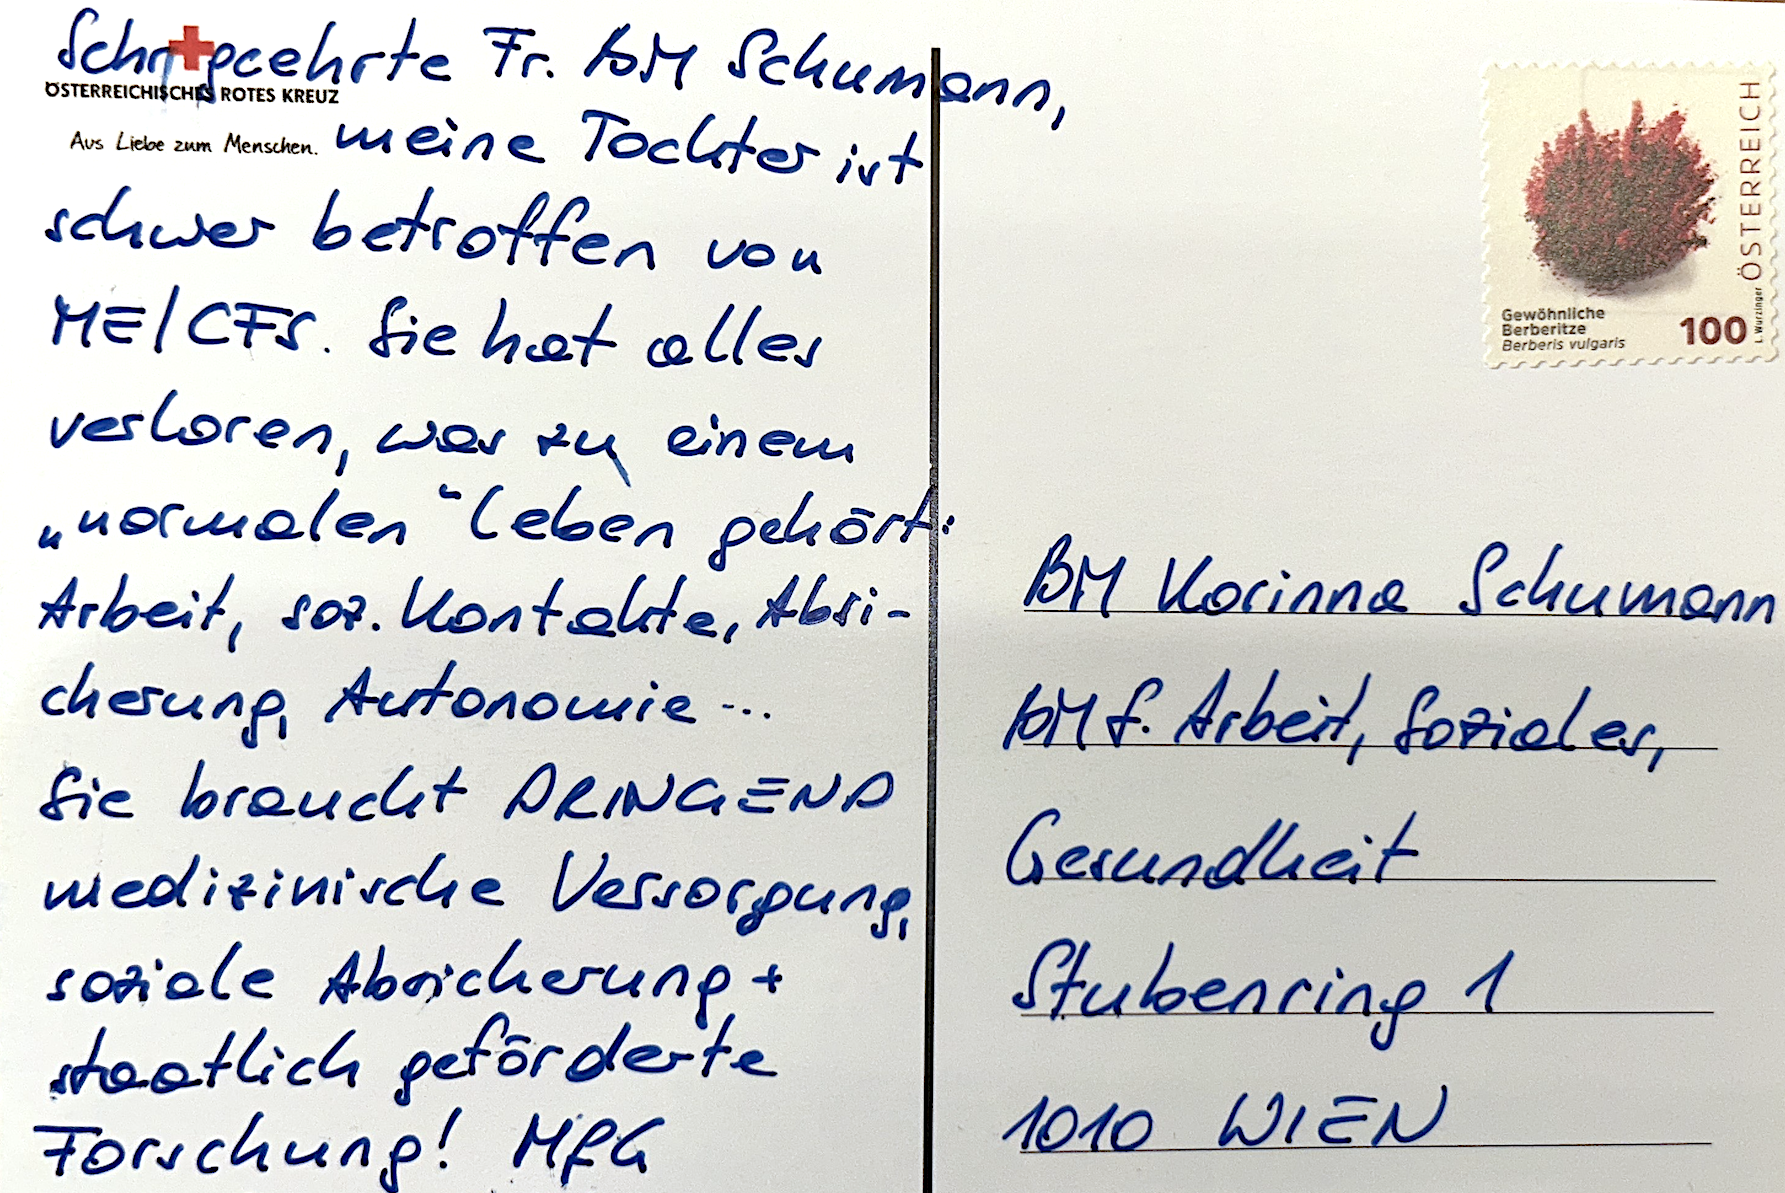 Sehr geehrte Fr. BM Schumann,
ÖSTERREICHISCHES ROTES KREUZ
Aus Liebe zum Menschen.
meine Tochter ist
schwer betroffen von
ME/CFS. Sie hat alles
verloren, was zu einem
„normalen" Leben gehört:
Arbeit, soz. Kontakte, Absi-
cherung, Autonomie...
Sie braucht DRINGEND
medizinische Versorgung,
soziale Absicherung +
staatlich geförderte
Forschung! MfG
ÖSTERREICH
L. Wurzinger
Gewöhnliche
Berberitze
Berberis vulgaris
100
BM Korinna Schumann
BM f. Arbeit, Soziales,
Gesundheit
Stubenring 1
1010 WIEN